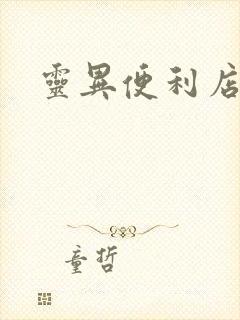 靈異便利店
童哲